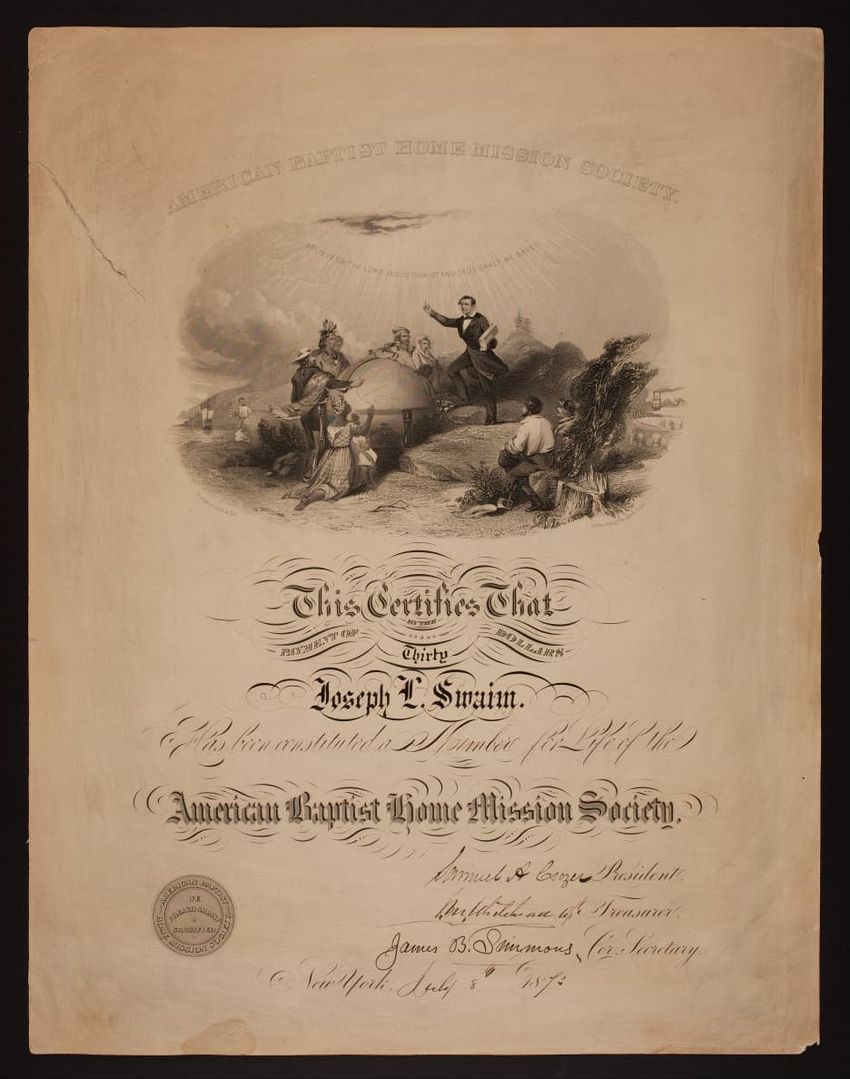 AMERICAN BAPTIST HOME MISSION SOCIETY.
BELIEVE ON THE LORD JESUS CHRIST AND THOU SHALT BE SAVED
This Certifies That
BY THE
PAYMENT OF Thirty DOLLARS
Joseph L. Swaim.
Has been constituted a Member for Life of the
American Baptist Home Mission Society.
Samuel A Crozer President.
Treasurer.
James B. Simmons, Cor. Secretary.
New York. July 8th 1873
AMERICAN BAPTIST
HOME MISSION SOCIETY
WE
PREACH CHRIST
CRUCIFIED